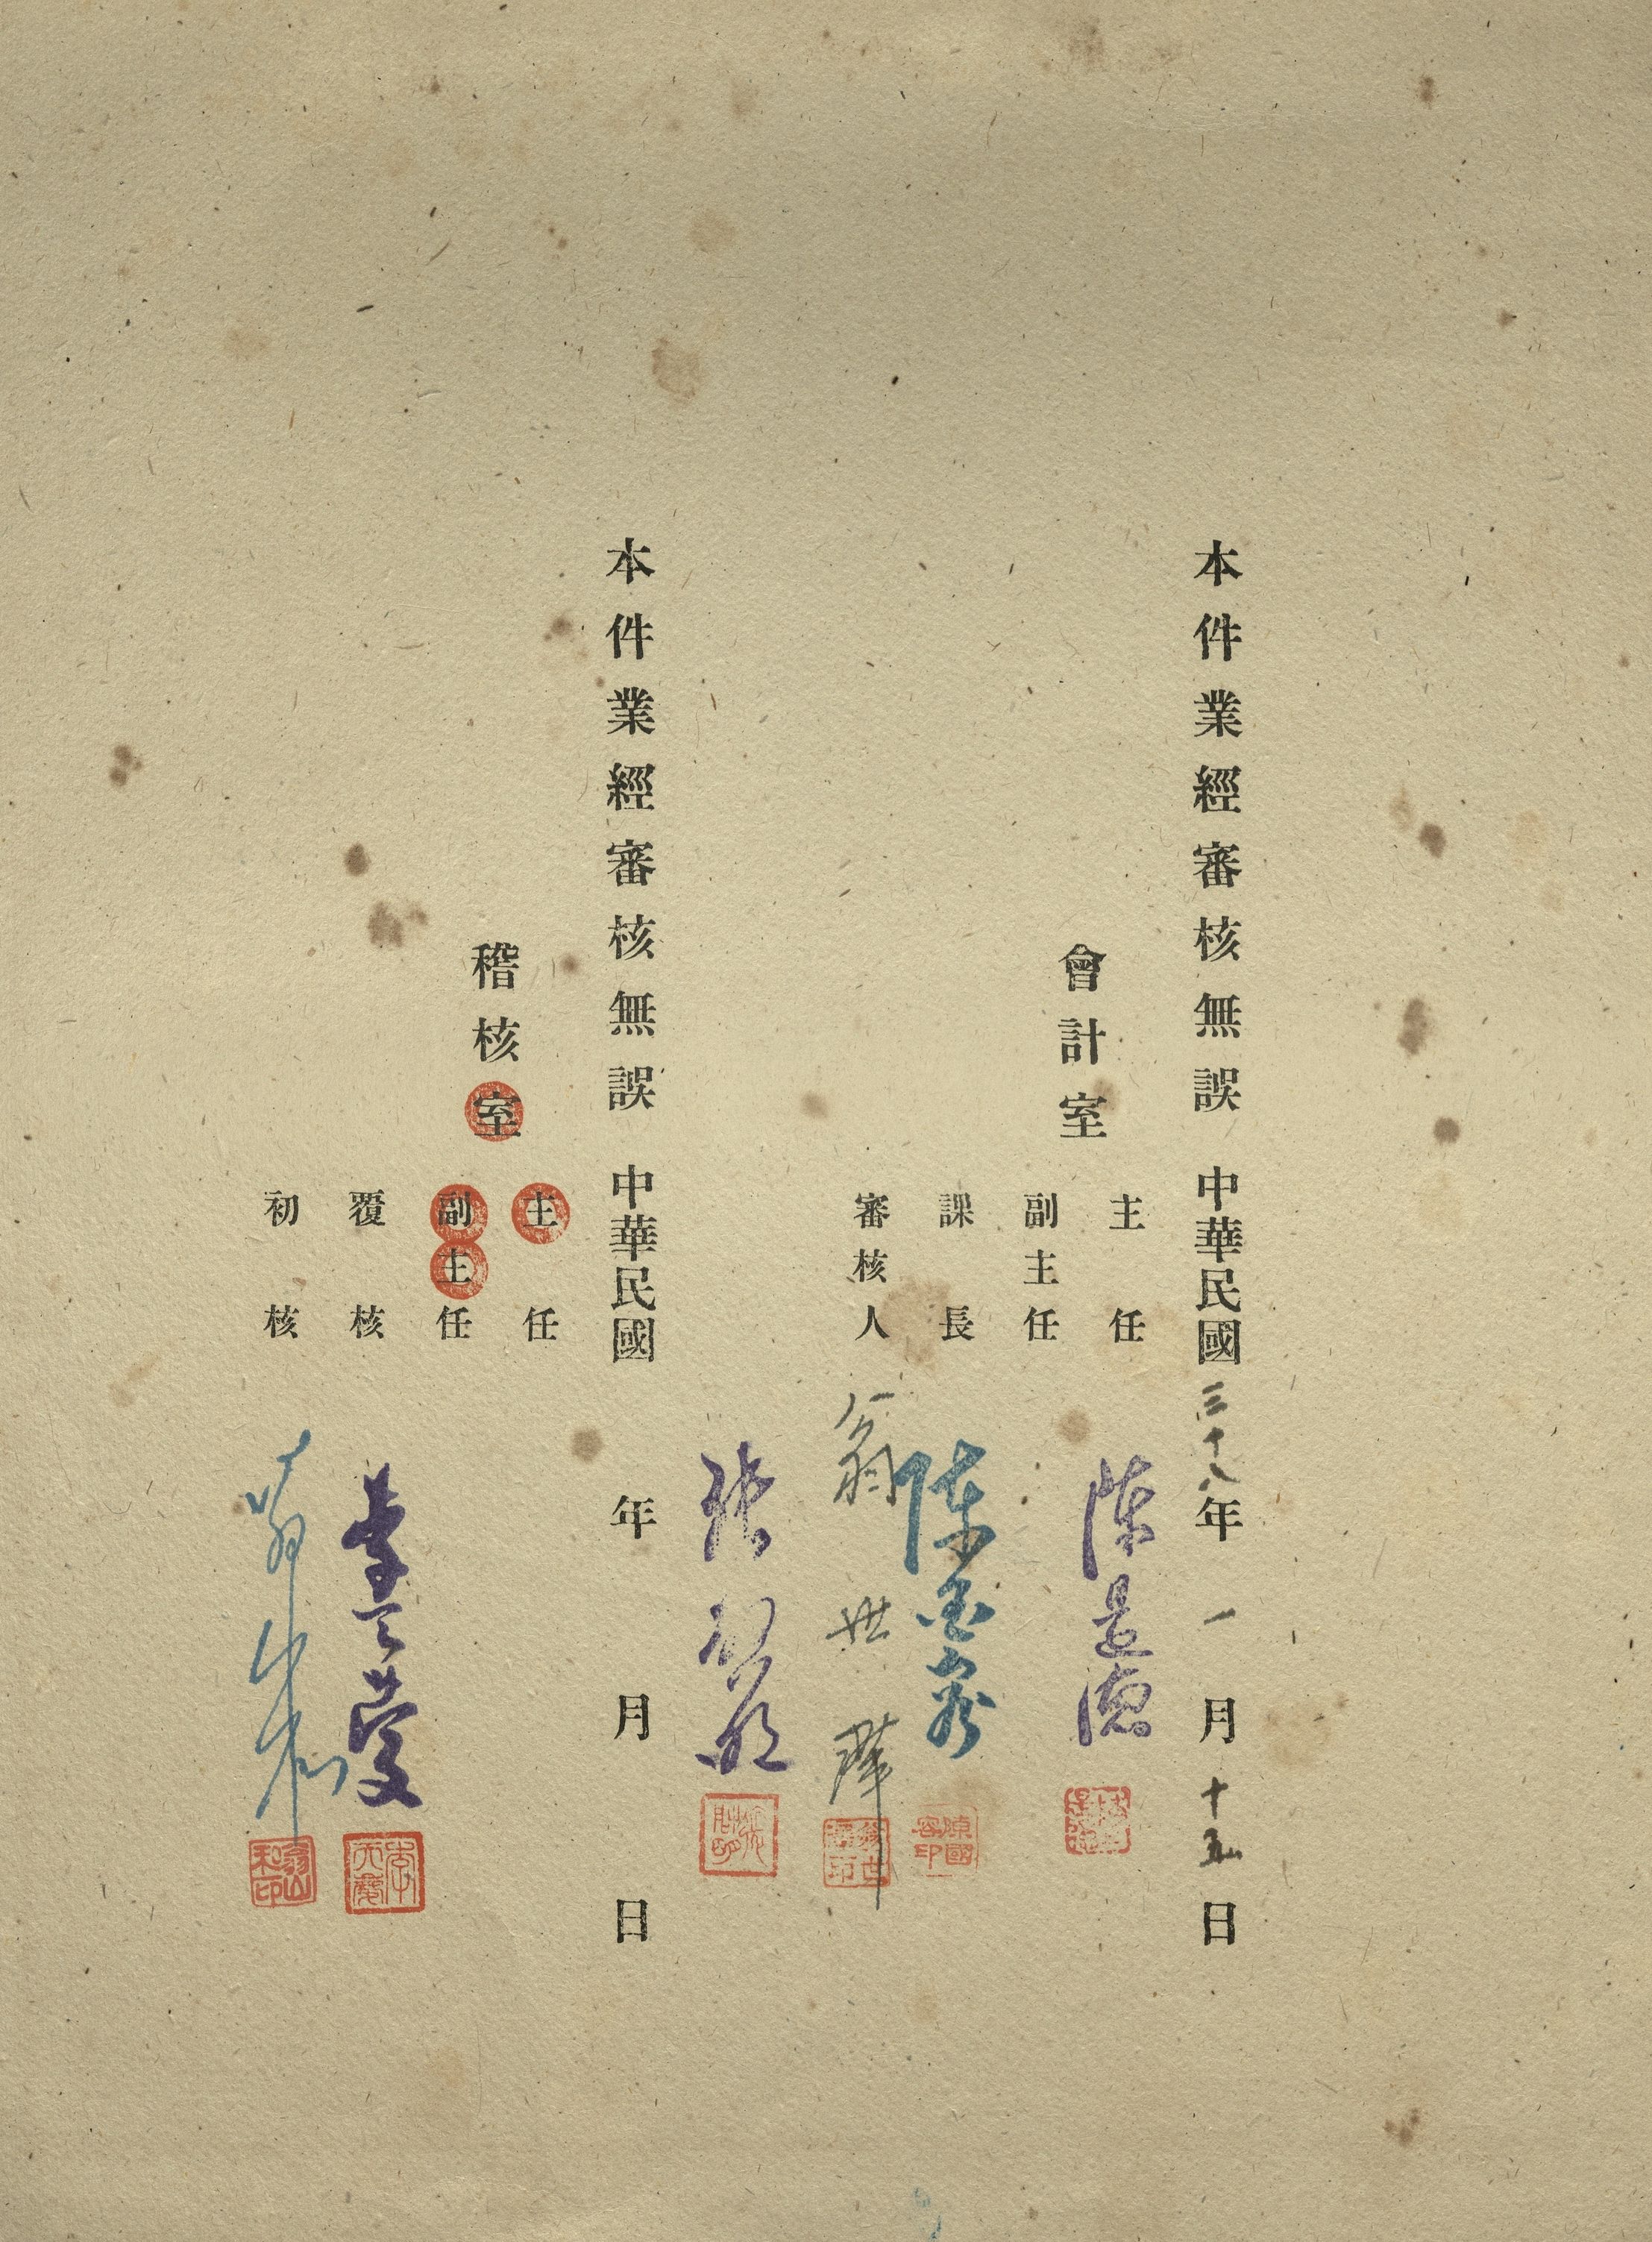 本件業經審核無誤 中華民國三十八年一月十五日
會計室
主任 陳是德
副主任
課長 陳國容
陳國容印
審核人 翁世璍
張
本件業經審核無誤 中華民國 年 月 日
稽核室
主任
副主任
覆核 李天慶
李天慶
初核 翁山和
翁山和印